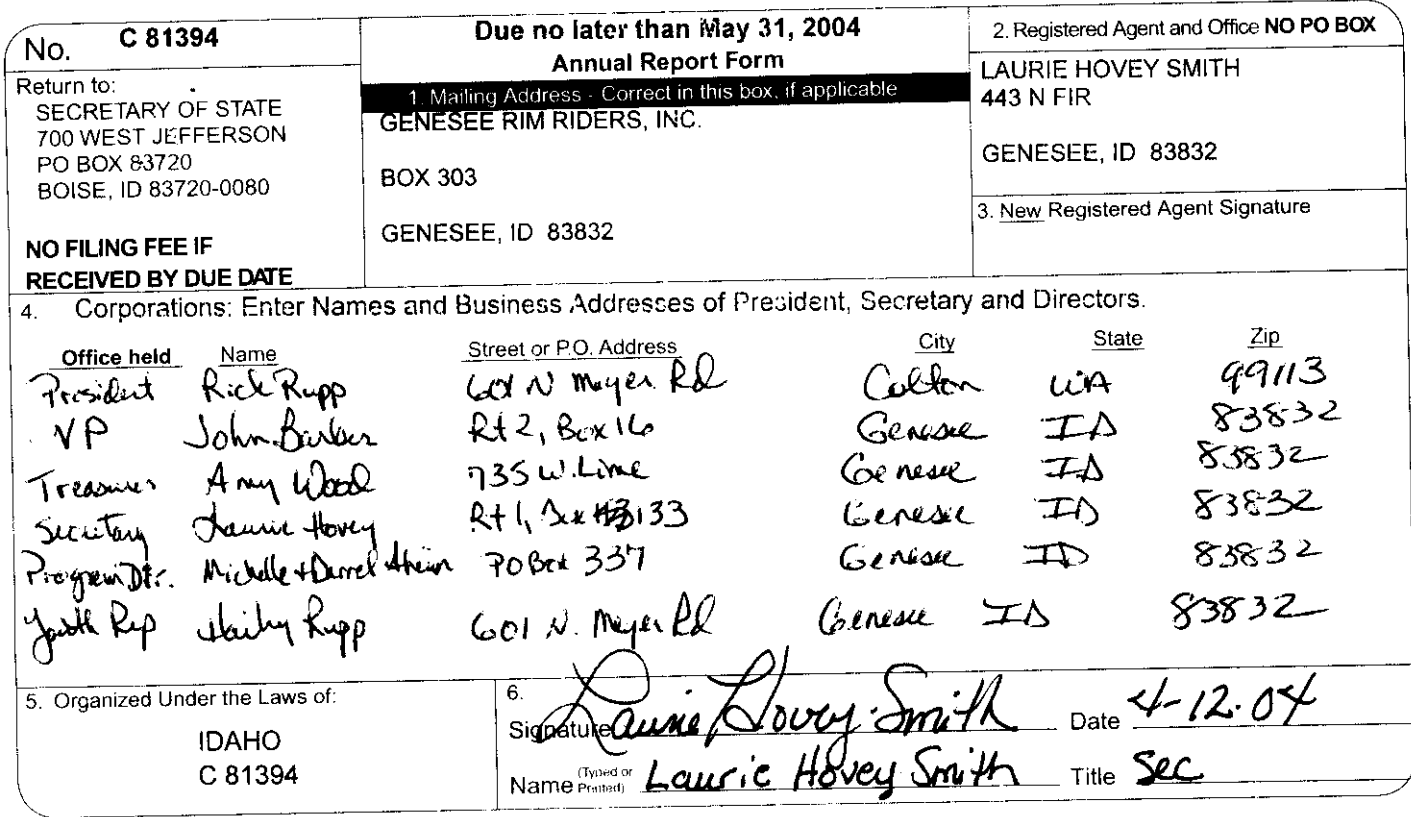 No. C 81394
Return to:
SECRETARY OF STATE
700 WEST JEFFERSON
PO BOX 83720
BOISE, ID 83720-0080
NO FILING FEE IF
RECEIVED BY DUE DATE
Due no later than May 31, 2004
Annual Report Form
1. Mailing Address - Correct in this box, if applicable
GENESEE RIM RIDERS, INC.
BOX 303
GENESEE, ID 83832
2. Registered Agent and Office NO PO BOX
LAURIE HOVEY SMITH
443 N FIR
GENESEE, ID 83832
3. New Registered Agent Signature
4. Corporations: Enter Names and Business Addresses of President, Secretary and Directors.
Office held Name Street or P.O. Address City State Zip
President Rick Rupp 601 N Meyer Rd Colton WA 99113
VP John Barber Rt 2, Box 16 Genesee ID 83832
Treasurer Amy Wood 735 W. Lime Genesee ID 83832
Secretary Laurie Hovey Rt 1, Box 133 Genesee ID 83832
Program Dir. Michelle + Darrel PO Box 337 Genesee ID 83832
Youth Rep Rupp 601 N. Meyer Rd Genesee ID 83832
5. Organized Under the Laws of:
IDAHO
C 81394
6.
Signature Laurie Hovey-Smith Date 4-12-04
Name (Typed or Printed) Laurie Hovey Smith Title Sec